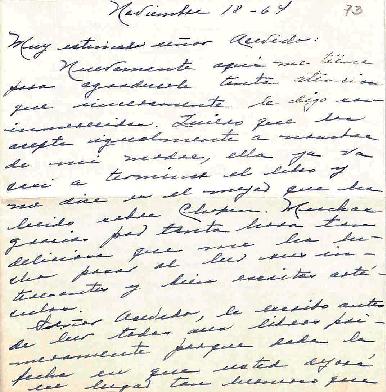 Noviembre 18-64
73
Muy estimado señor Acevedo:
Nuevamente aquí me tiene
para agradecerle tanta atención
que sinceramente le digo son
inmerecidas. Quiero que las
acepte igualmente a nombre
de mi madre, ella ya va
casi a terminar el libro y
me dice es el mejor que ha
leído sobre Chopin. Muchas
gracias por tanta hora tan
deliciosa que me ha he-
cho pasar al leer sus in-
teresantes y bien escritos artí-
culos.
Señor Acevedo, le escribo antes
de leer todos sus libros pri-
meramente porque dada la
fecha en que usted
lugar tan que